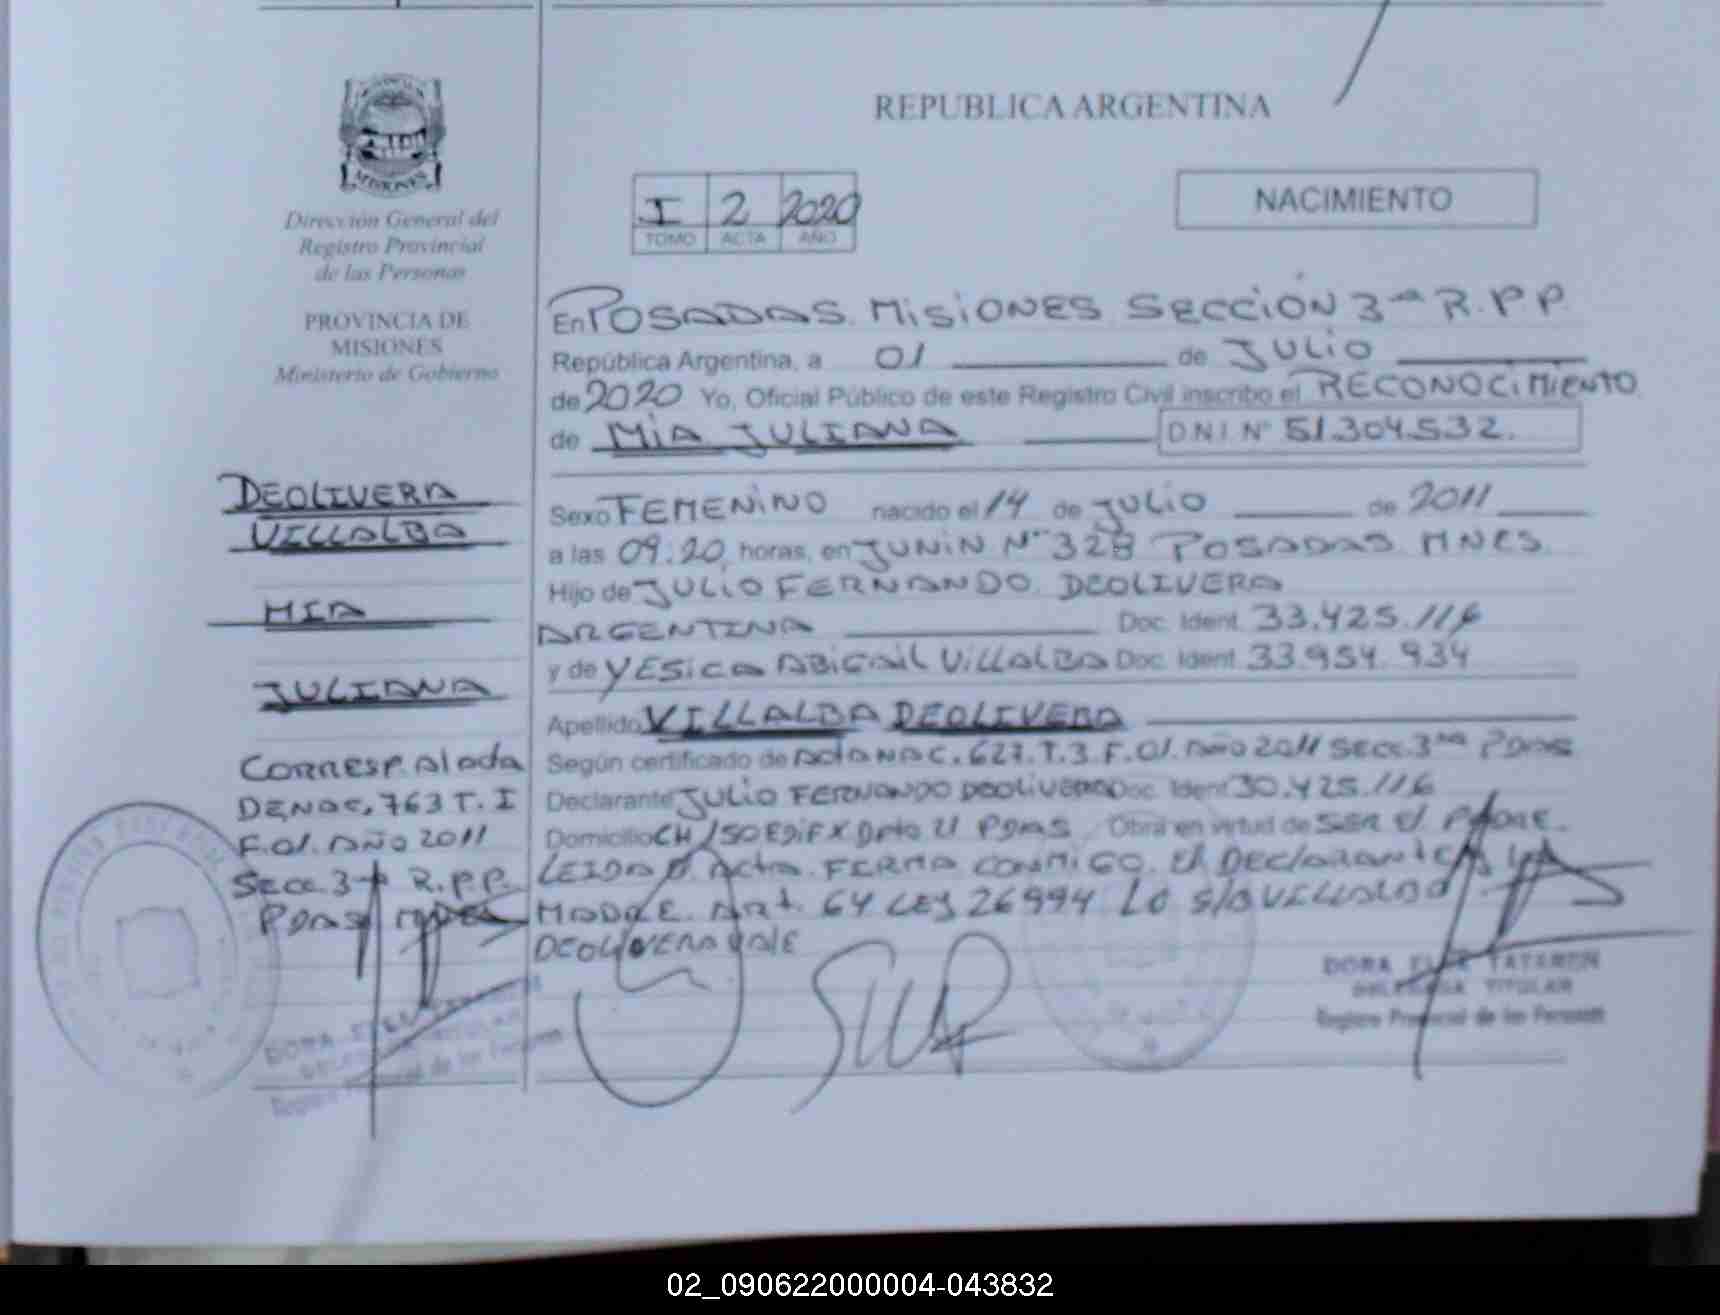 REPUBLICA ARGENTINA
MISIONES
Dirección General del
Registro Provincial
de las Personas
PROVINCIA DE
MISIONES
Ministerio de Gobierno
I 2 2020
TOMO ACTA AÑO
NACIMIENTO
En POSADAS MISIONES SECCIÓN 3ra R.P.P.
República Argentina, a 01 de JULIO
de 2020 Yo, Oficial Público de este Registro Civil inscribo el RECONOCIMIENTO
de MIA JULIANA D.N.I. N° 51.304.532.
Sexo FEMENINO nacido el 14 de JULIO de 2011
a las 09:20 horas, en JUNIN N° 328 POSADAS MNES.
Hijo de JULIO FERNANDO DEOLIVERA
ARGENTINA Doc. Ident. 33.425.116
y de YESICA ABIGAIL VILLALBA Doc. Ident. 33.954.934
Apellido VILLALBA DEOLIVERA
Según certificado de ACTA NAC. 627. T.3 F.01. AÑO 2011 SECC. 3ra PDAS
Declarante JULIO FERNANDO DEOLIVERA Doc. Ident 30.425.116
Domicilio CH 150 EDIF X Dpto PDAS Obra en virtud de SER El PADRE.
LEIDA Acta. FIRMA CONMIGO. El Declarante LA
MADRE. Art. 64 LEY 26994 LO S/A VILLALBA
DEOLIVERA VALE
DEOLIVERA
VILLALBA
MIA
JULIANA
CORRESP. Al acta
DE NAC. 763 T. I
F.01. AÑO 2011
SECC. 3ra R.P.P.
PDAS
DORA TATAREN
DELEGADA TITULAR
Registro Provincial de las Personas
DORA
Registro de las Personas
02_090622000004-043832